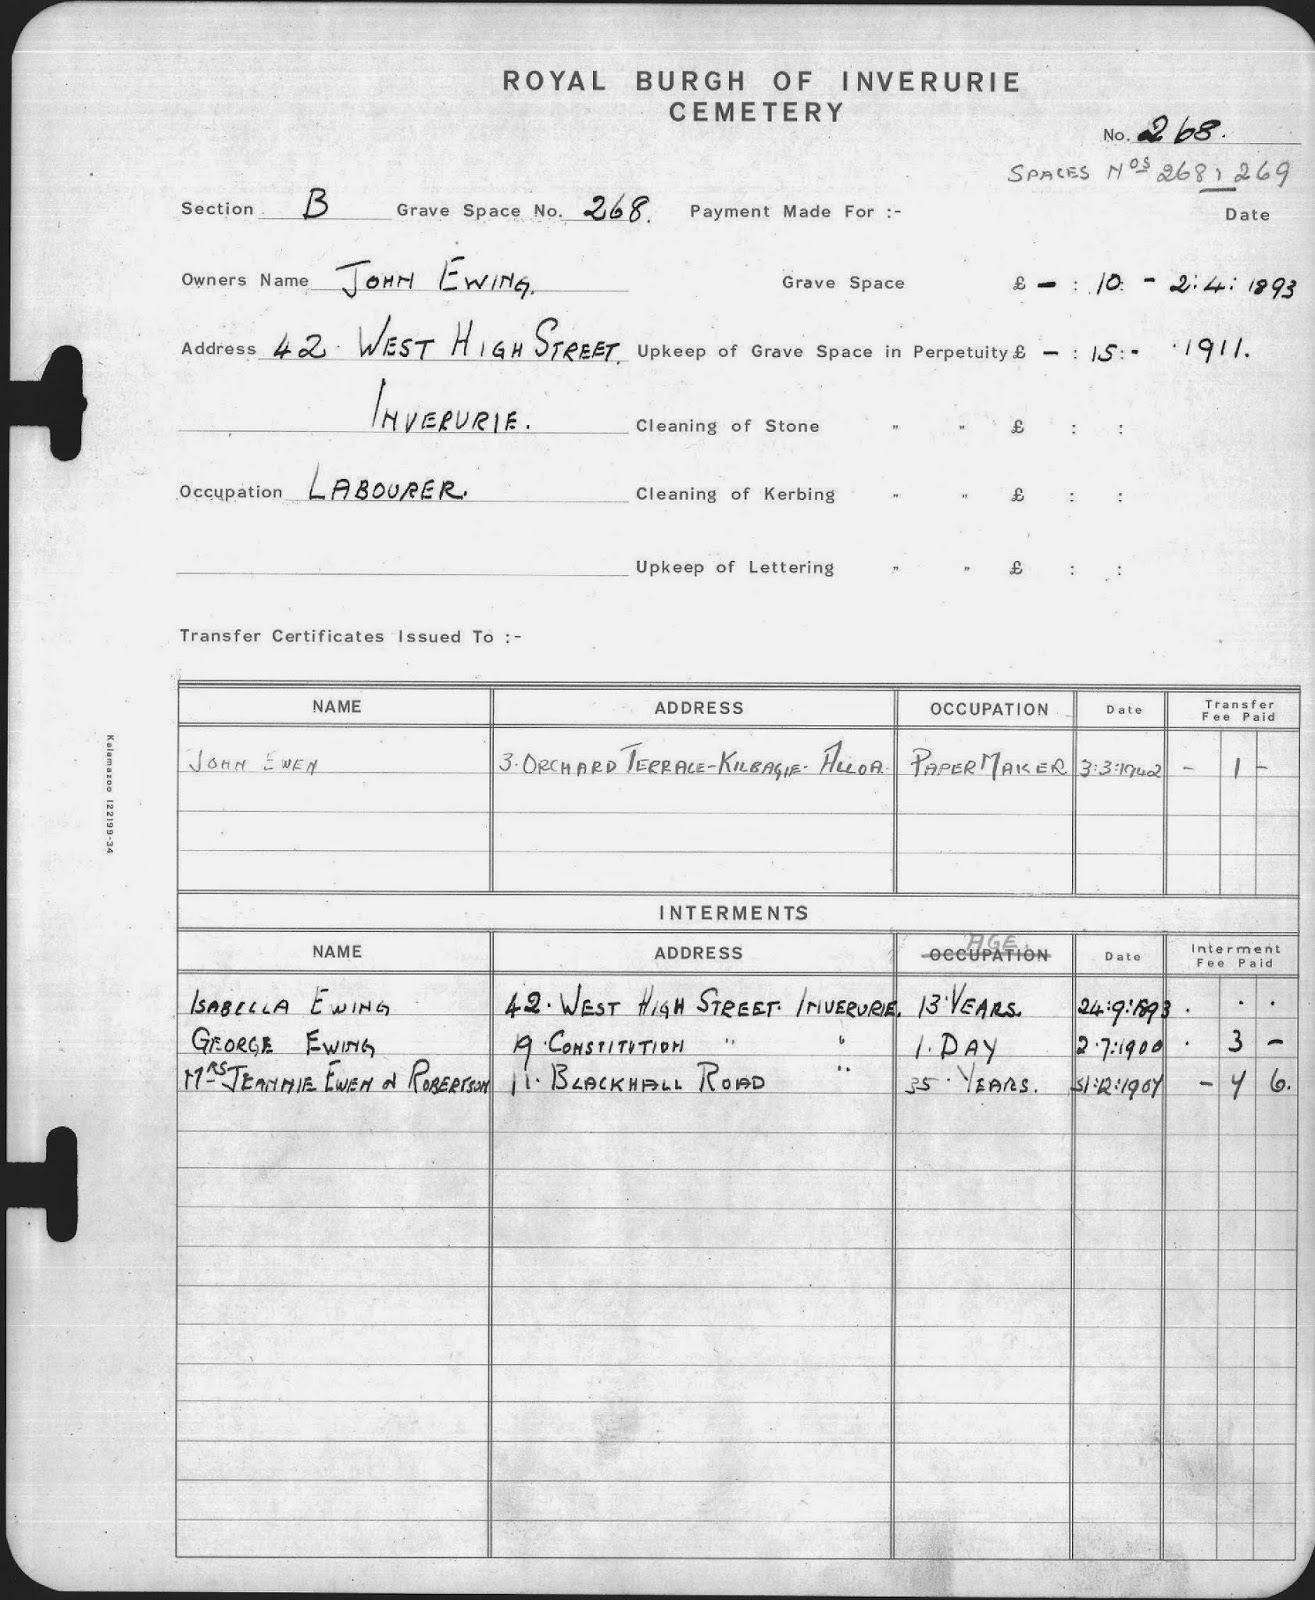 ROYAL BURGH OF INVERURIE
CEMETERY
No. 268.
SPACES Nos 268, 269
Section B Grave Space No. 268. Payment Made For :- Date
Owners Name JOHN EWING. Grave Space £ - : 10: - 2:4:1893
Address 42. WEST HIGH STREET. Upkeep of Grave Space in Perpetuity £ - : 15: - 1911.
INVERURIE. Cleaning of Stone " " £ : :
Occupation LABOURER. Cleaning of Kerbing " " £ : :
Upkeep of Lettering " " £ : :
Transfer Certificates Issued To :-
NAME ADDRESS OCCUPATION Date Transfer Fee Paid
JOHN EWEN 3. ORCHARD TERRACE - KILBAGIE - ALLOA. PAPER MAKER 3:3:1942 - 1 -
INTERMENTS
NAME ADDRESS OCCUPATION AGE. Date Interment Fee Paid
ISABELLA EWING 42. WEST HIGH STREET. INVERURIE. 13 YEARS. 24:9:1893 . . .
GEORGE EWING 19. CONSTITUTION " " 1. DAY 2.7:1900 . 3 -
MRS JEANNIE EWEN OR ROBERTSON 11. BLACKHALL ROAD " 35. YEARS. 31:12:1907 - 4 6.
Kalamazoo 122199-34